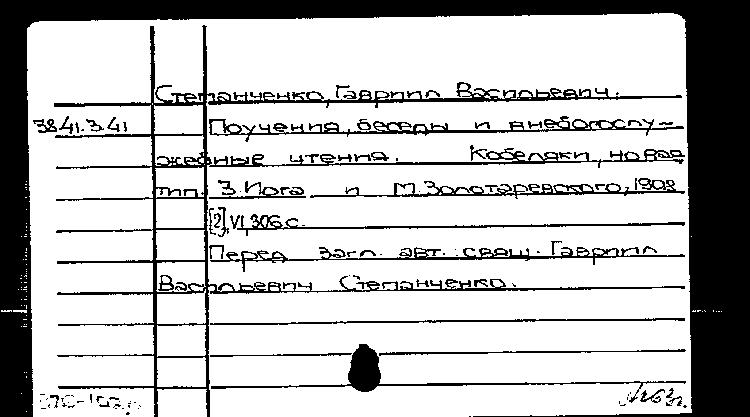 Степанченко, Гавриил Васильевич.
38.41.3.41 Поучения, беседы и внебогослу-
жебные чтения. Кобеляки, новая
тип. З. Йога и М. Золотаревского, 1908
[2], VI, 306 с.
Перед загл. авт.: свящ. Гавриил
Васильевич Степанченко.